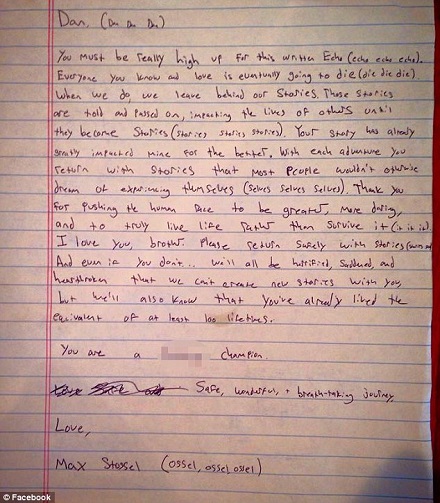 Dan, (Dan Dan Dan)
You must be really high up for this written Echo (echo echo echo).
Everyone you know and love is eventually going to die (die die die)
When we do, we leave behind our Stories. Those Stories
are told and passed on, impacting the lives of others until
they become Stories (stories stories stories). Your story has already
greatly impacted mine for the better. With each adventure you
return with stories that most people wouldn't otherwise
dream of experiencing themselves (selves selves selves). Thank you
for pushing the human race to be greater, more daring,
and to truly live life rather than survive it (it it it).
I love you, brother. Please return safely with stories
And even if you don't... we'll all be horrified, saddened, and
heartbroken that we can't create new stories with you,
but we'll also know that you've already lived the
equivalent of at least 100 lifetimes.
You are a champion.
Safe, wonderful, + breath-taking journey
Love,
Max Stossel (ossel, ossel ossel)
© Facebook